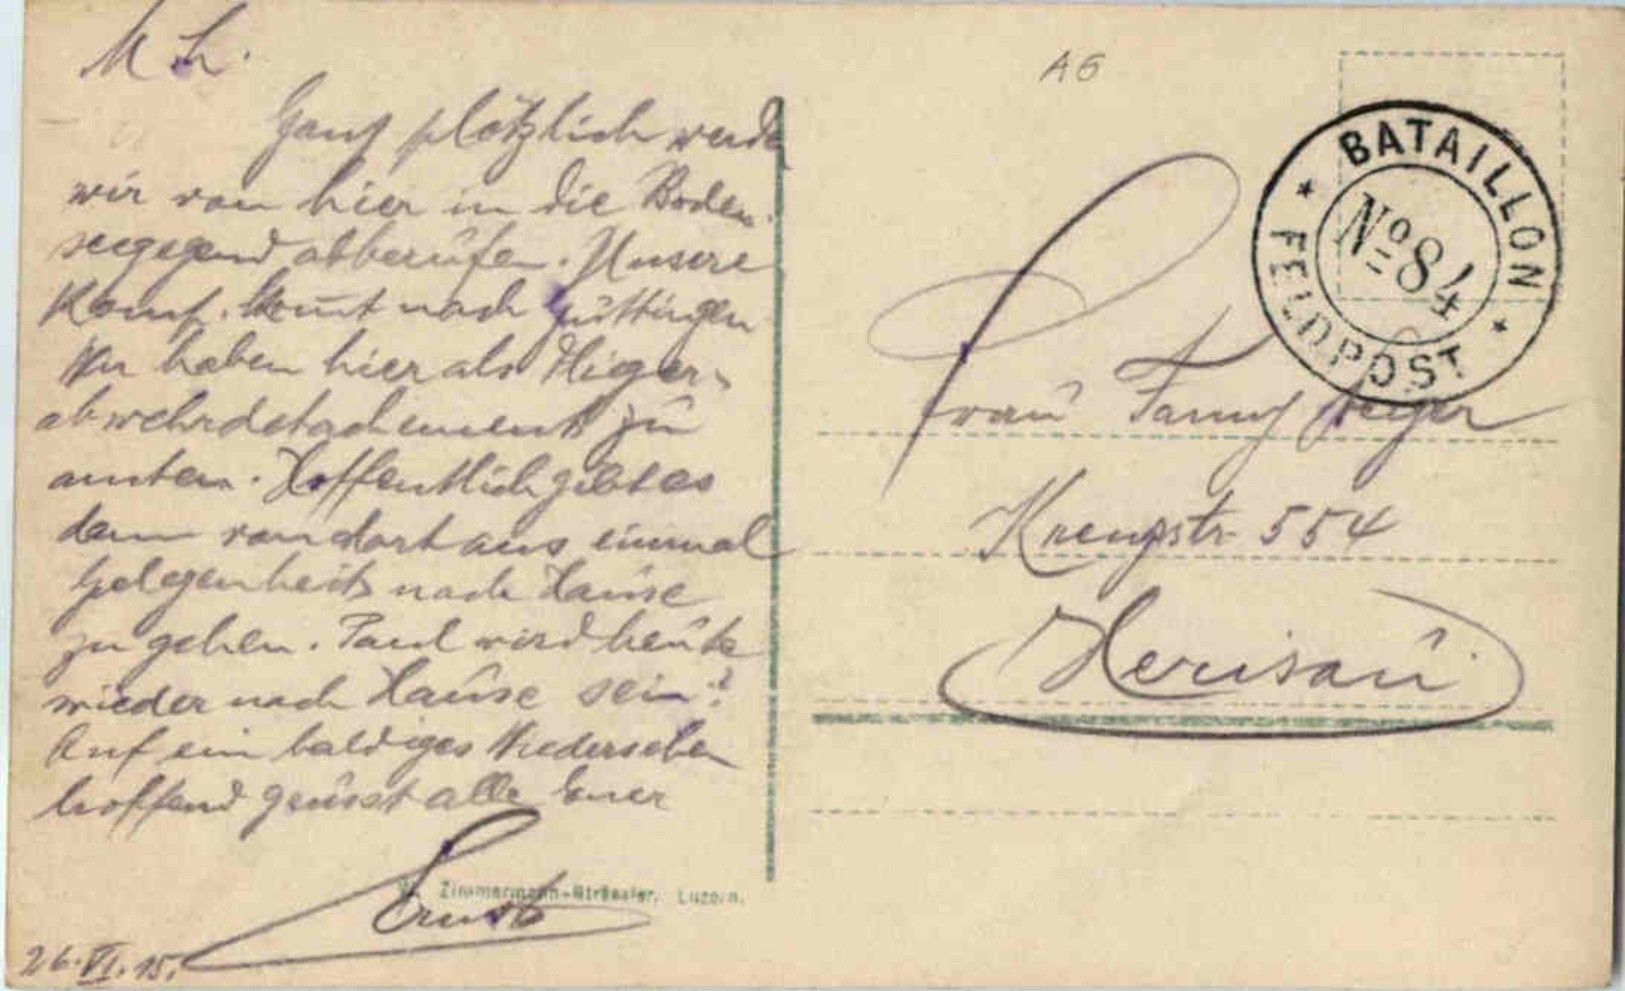 M L.
Ganz plötzlich werden
wir von hier in die Boden-
seegegend abberufen. Unsere
Komp. komt nach Güttingen
Wir haben hier als Flieger-
abwehrdetachement zu
amten. Hoffentlich gibt es
dann von dort aus einmal
Gelegenheit nach Hause
zu gehen. Paul wird heute
wieder nach Hause sein?
Auf ein baldiges Wiedersehen
hoffend grüsst alle Euer
Ernst
26.VI.15.
Zimmermann-Strässler, Luzern.
A6
BATAILLON
No 84
FELDPOST
Frau Fanny
Kreuzstr. 554
Herisau